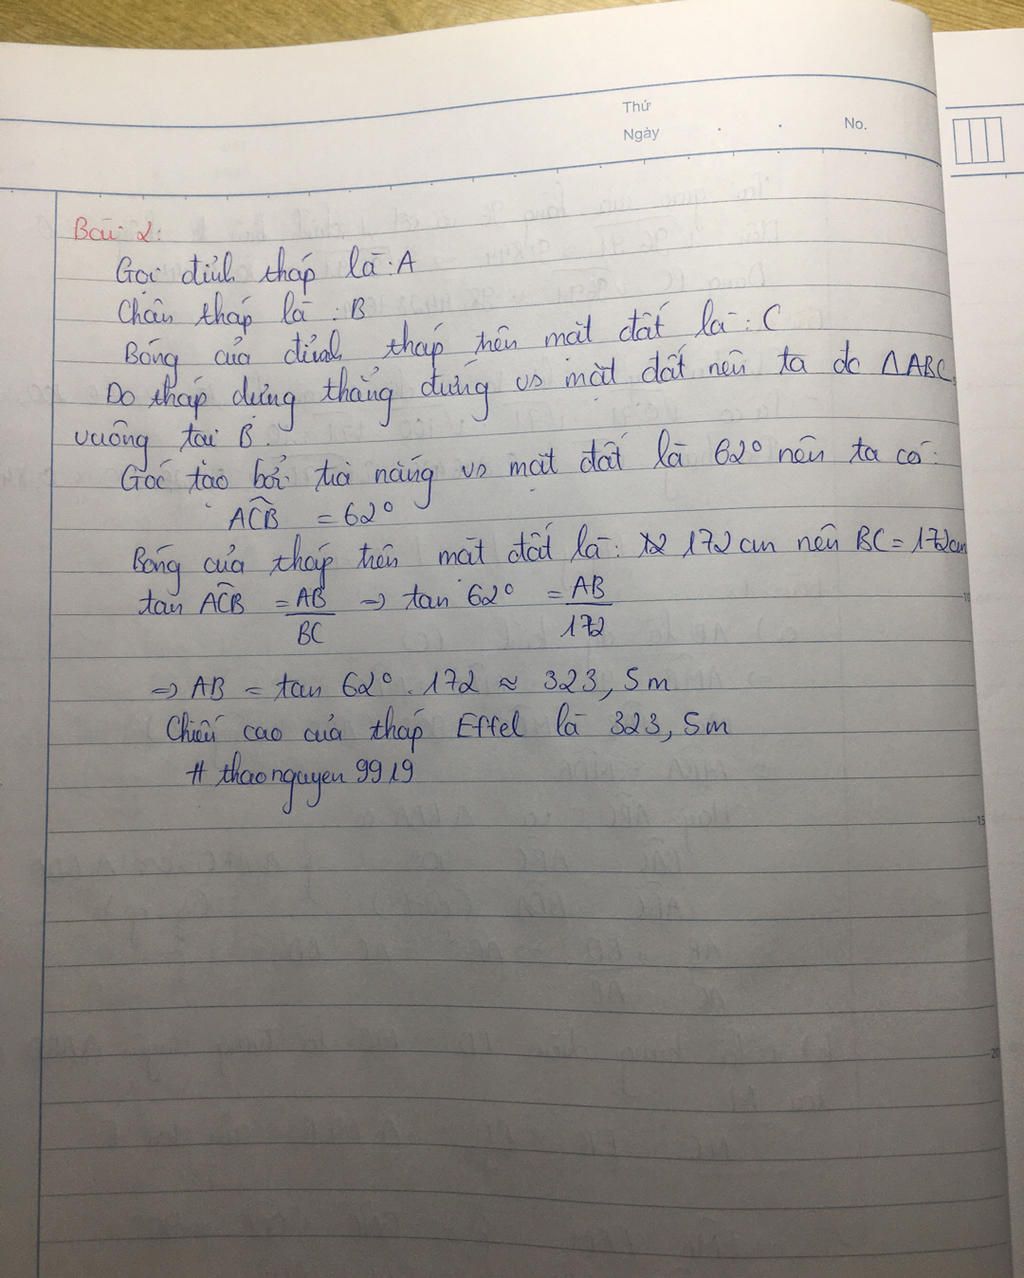 Thứ
Ngày . . No.
Bài 2:
Gọi đỉnh tháp là: A
Chân tháp là: B
Bóng của đỉnh tháp trên mặt đất là: C
Do tháp đứng thẳng đứng vs mặt đất nên ta đc ΔABC
vuông tại B.
Góc tạo bởi tia nắng vs mặt đất là 62° nên ta có:
ACB = 62°
Bóng của tháp trên mặt đất là: 172 cm nên BC = 172cm
tan ACB = AB/BC => tan 62° = AB/172
=> AB = tan 62° . 172 ≈ 323,5m
Chiều cao của tháp Effel là 323,5m
# thaonguyen 9919